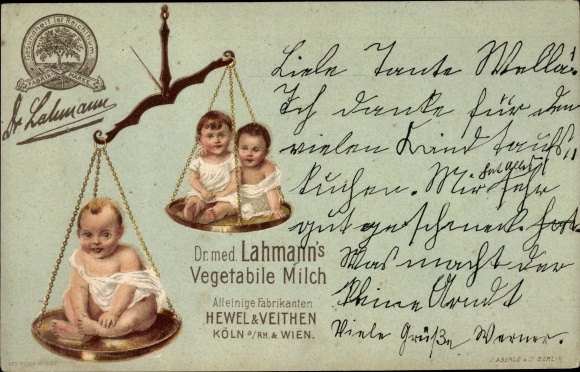 Gesundheit ist Reichthum
FABRIK MARKE
Dr Lahmann
Dr. med. Lahmann's
Vegetabile Milch
Alleinige Fabrikanten
HEWEL & VEITHEN
KÖLN a/RH. & WIEN.
Liebe Tante Wella!
Ich danke für den
vielen Kind taufs
kuchen. Mir hat alles sehr
gut geschmeckt.
Was macht der
kleine Arndt
Viele Grüße Werner.
ABERLE & Co BERLIN